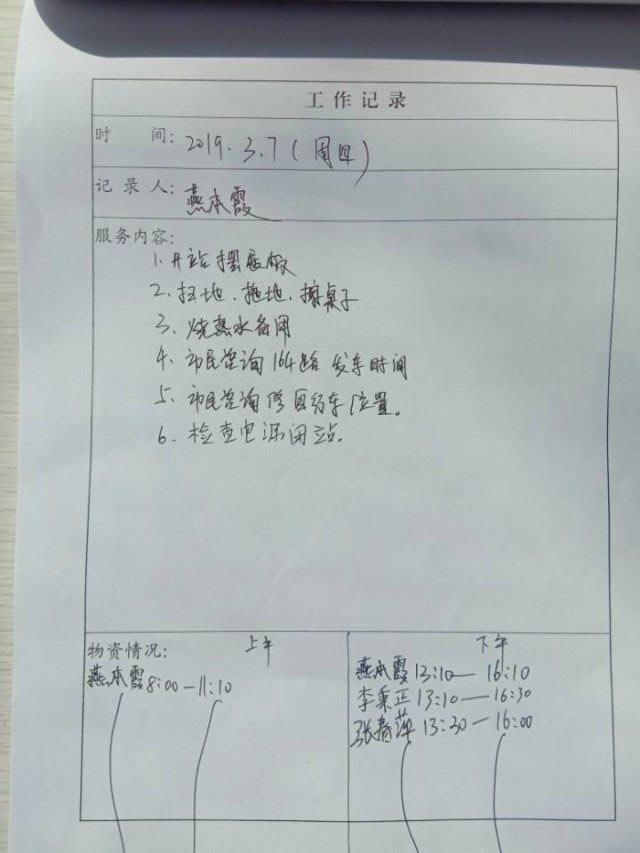 工作记录
时 间: 2019.3.7(周四)
记录人: 燕本霞
服务内容:
1. 开站摆展板
2. 扫地、拖地、擦桌子
3. 烧热水备用
4. 市民咨询164路发车时间
5. 市民咨询修自行车位置。
6. 检查电源闭站.
物资情况: 上午
燕本霞 8:00—11:10
下午
燕本霞 13:10—16:10
李秉正 13:10—16:30
张春萍 13:30—16:00